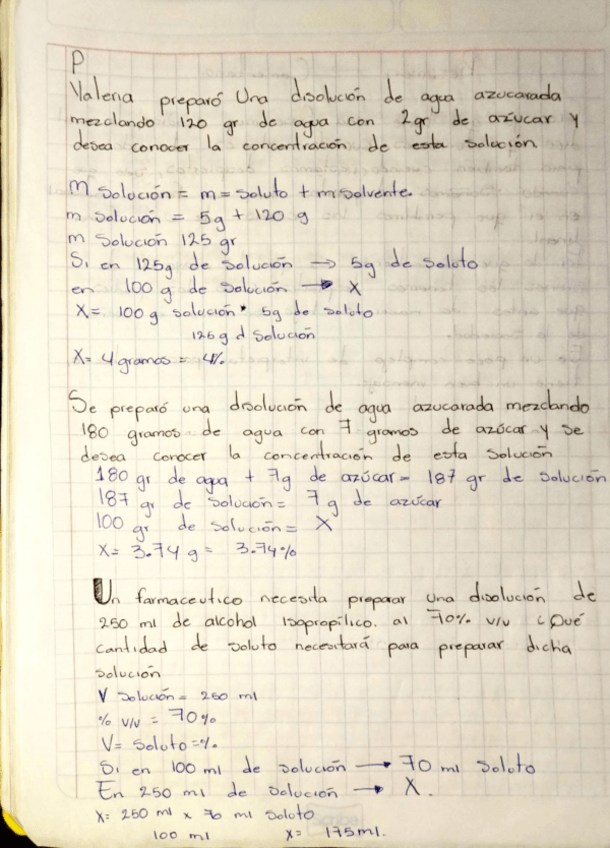 P
Valeria preparó Una disolución de agua azucarada
mezclando 120 gr de agua con 2gr de azucar y
desea conocer la concentración de esta solución
m solución = m = soluto + m solvente.
m solución = 5g + 120 g
m Solución 125 gr
Si en 125g de solución → 5g de soluto
en 100 g de solución → X
X= 100 g solución * 5g de soluto
125 g d Solución
X= 4 gramos = 4%
Se preparó una disolución de agua azucarada mezclando
180 gramos de agua con 7 gramos de azúcar y se
desea conocer la concentración de esta solución
180 gr de agua + 7g de azúcar = 187 gr de solución
187 gr de solución = 7 g de azúcar
100 gr de solución = X
X= 3.74 g = 3.74%
Un farmaceutico necesita preparar una disolución de
250 ml de alcohol isopropílico. al 70% v/v ¿Qué
cantidad de soluto necesitará para preparar dicha
solución
V solución = 250 ml
% v/v = 70%
V= Soluto =%.
Si en 100 ml de solución → 70 ml soluto
En 250 ml de solución → X.
X= 250 ml x 70 ml soluto
100 ml X= 175ml.